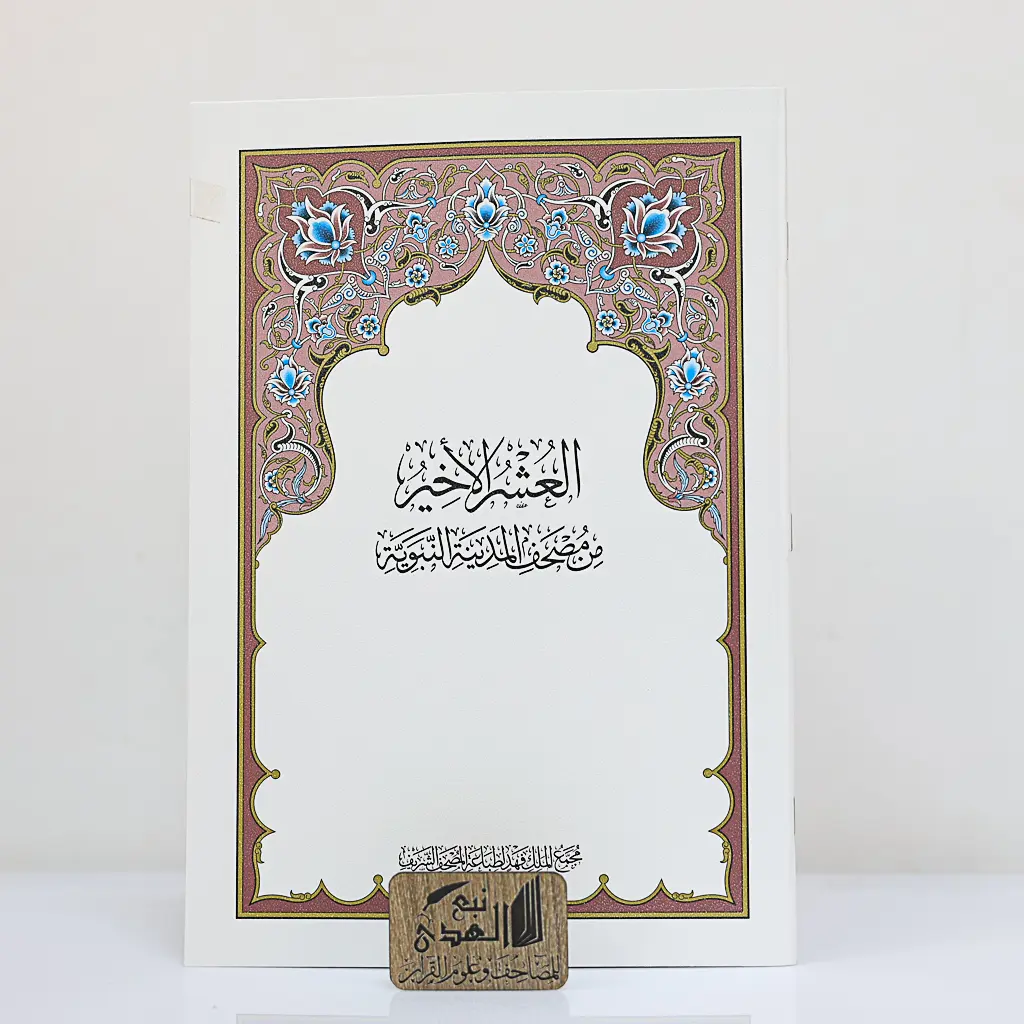 العُشْرُ الأَخِيرُ
مِنْ مُصْحَفِ المَدِينَةِ النَّبَوِيَّةِ
مُجَمَّعُ المَلِك فَهْد لِطِبَاعَةِ المُصْحَفِ الشَّرِيفِ
نبع
الهدى
للمصاحف وعلوم القرآن